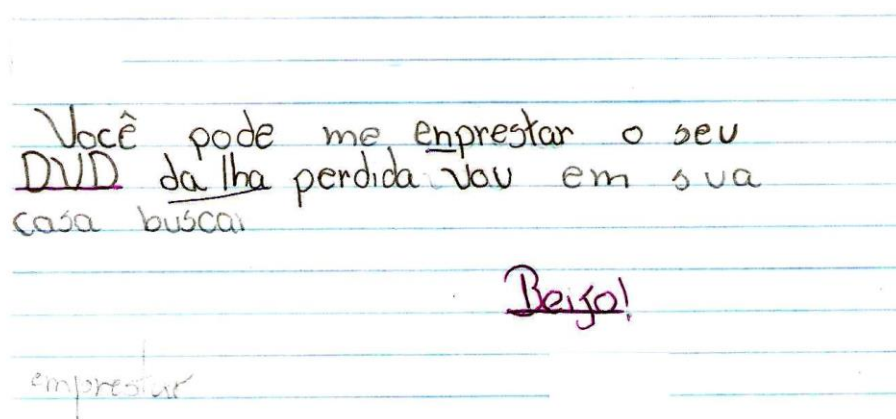 Você pode me enprestar o seu
DVD da lha perdida vou em sua
casa buscar
Beijo!
emprestar